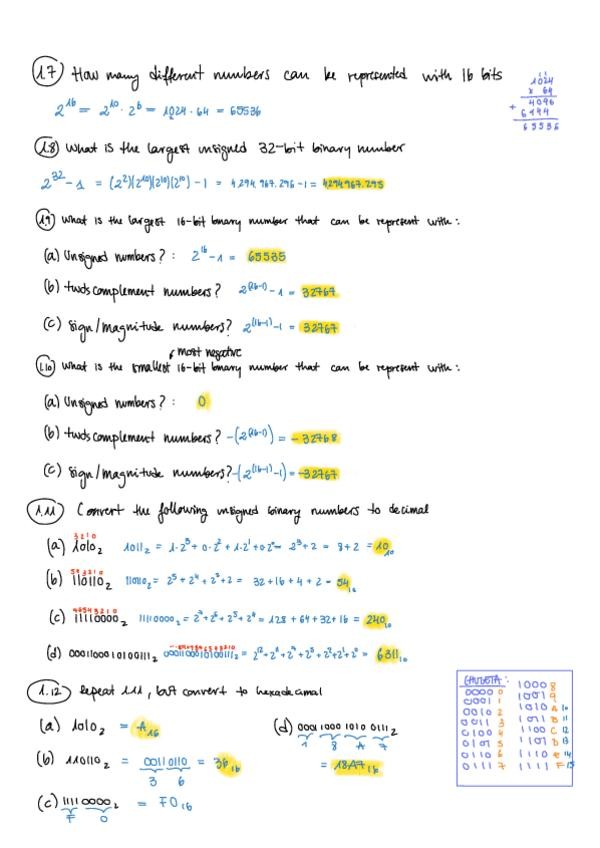 1.7 How many different numbers can be represented with 16 bits
2^16 = 2^10 · 2^6 = 1024 · 64 = 65536
1024
x 64
4096
+
6144
65536
1.8 What is the largest unsigned 32-bit binary number
2^32 - 1 = (2^2)(2^10)(2^10)(2^10) - 1 = 4.294.967.296 - 1 = 4294967.295
1.9 What is the largest 16-bit binary number that can be represent with:
(a) Unsigned numbers? : 2^16 - 1 = 65535
(b) twos complement numbers? 2^(16-1) - 1 = 32767
(c) sign/magnitude numbers? 2^(16-1) - 1 = 32767
most negative
1.10 What is the smallest 16-bit binary number that can be represent with:
(a) Unsigned numbers? : 0
(b) twos complement numbers? -(2^(16-1)) = -32768
(c) sign/magnitude numbers? -(2^(16-1) - 1) = -32767
1.11 Convert the following unsigned binary numbers to decimal
3210
(a) 1010₂ 1011₂ = 1·2^3 + 0·2^2 + 1·2^1 + 0·2^0 = 2^3 + 2 = 8 + 2 = 10₁₀
543210
(b) 110110₂ 110110₂ = 2^5 + 2^4 + 2^2 + 2 = 32 + 16 + 4 + 2 = 54₁₀
76543210
(c) 11110000₂ 11110000₂ = 2^7 + 2^6 + 2^5 + 2^4 = 128 + 64 + 32 + 16 = 240₁₀
(d) 0001100010100111₂ 0001100010100111₂ = 2^12 + 2^11 + 2^7 + 2^5 + 2^2 + 2^1 + 2^0 = 6311₁₀
1.12 Repeat 1.11, but convert to hexadecimal
(a) 1010₂ = A₁₆
(b) 110110₂ = 00110110 = 36₁₆
3 6
(c) 11110000₂ = F0₁₆
F 0
(d) 0001 1000 1010 0111₂
1 8 A 7
= 18A7₁₆
CHULETA:
0000 0
0001 1
0010 2
0011 3
0100 4
0101 5
0110 6
0111 7
1000 8
1001 9
1010 A 10
1011 B 11
1100 C 12
1101 D 13
1110 E 14
1111 F 15